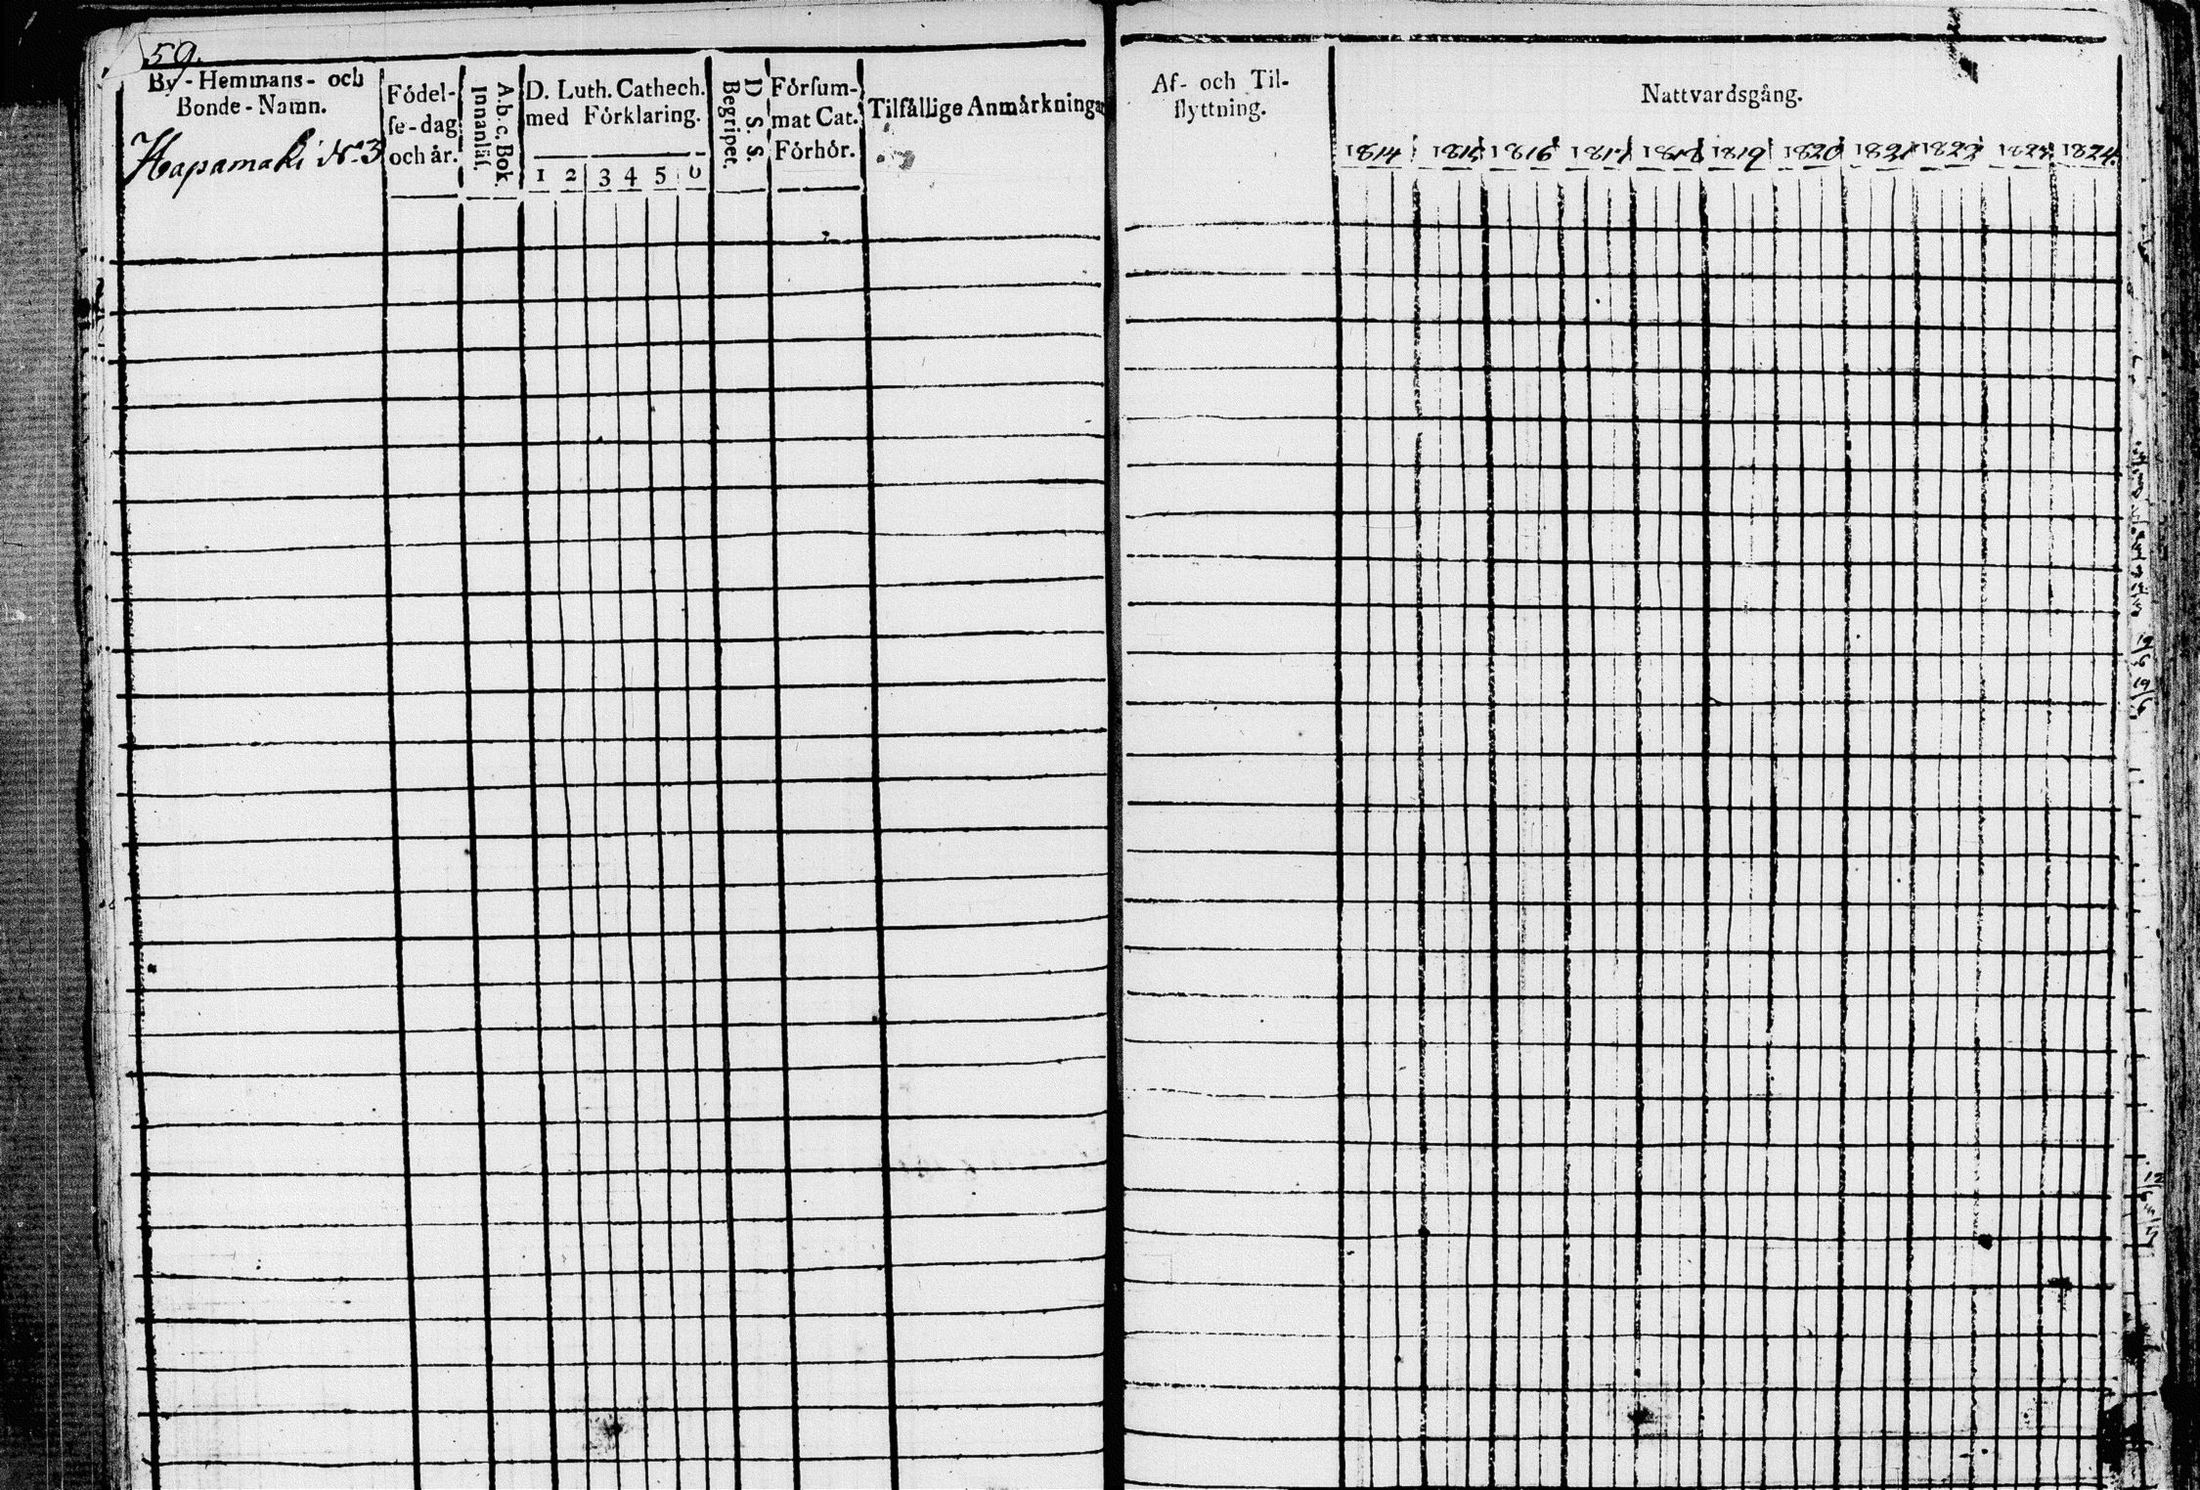 59.
By-Hemmans- och
Bonde-Namn.
Hapamaki No 3
Födel-
se-dag
och år.
A.b.c. Bok.
Innanläs.
D. Luth. Cathech.
med Förklaring.
1 2 3 4 5 6
D. S. S.
Begripet.
Försum-
mat Cat.
Förhör.
Tilfällige Anmärkningar
Af- och Til-
flyttning.
Nattvardsgång.
1814 1815 1816 1817 1818 1819 1820 1821 1822 1823 1824